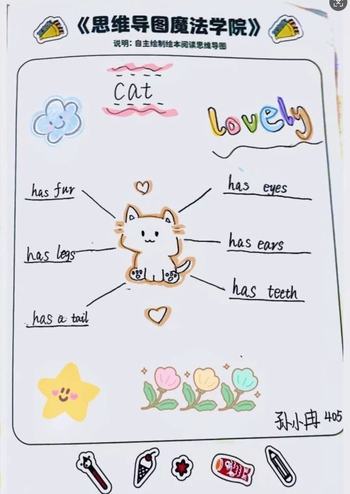 《思维导图魔法学院》
说明：自主绘制绘本阅读思维导图
cat
lovely
has fur
has eyes
has legs
has ears
has a tail
has teeth
孙小冉 405